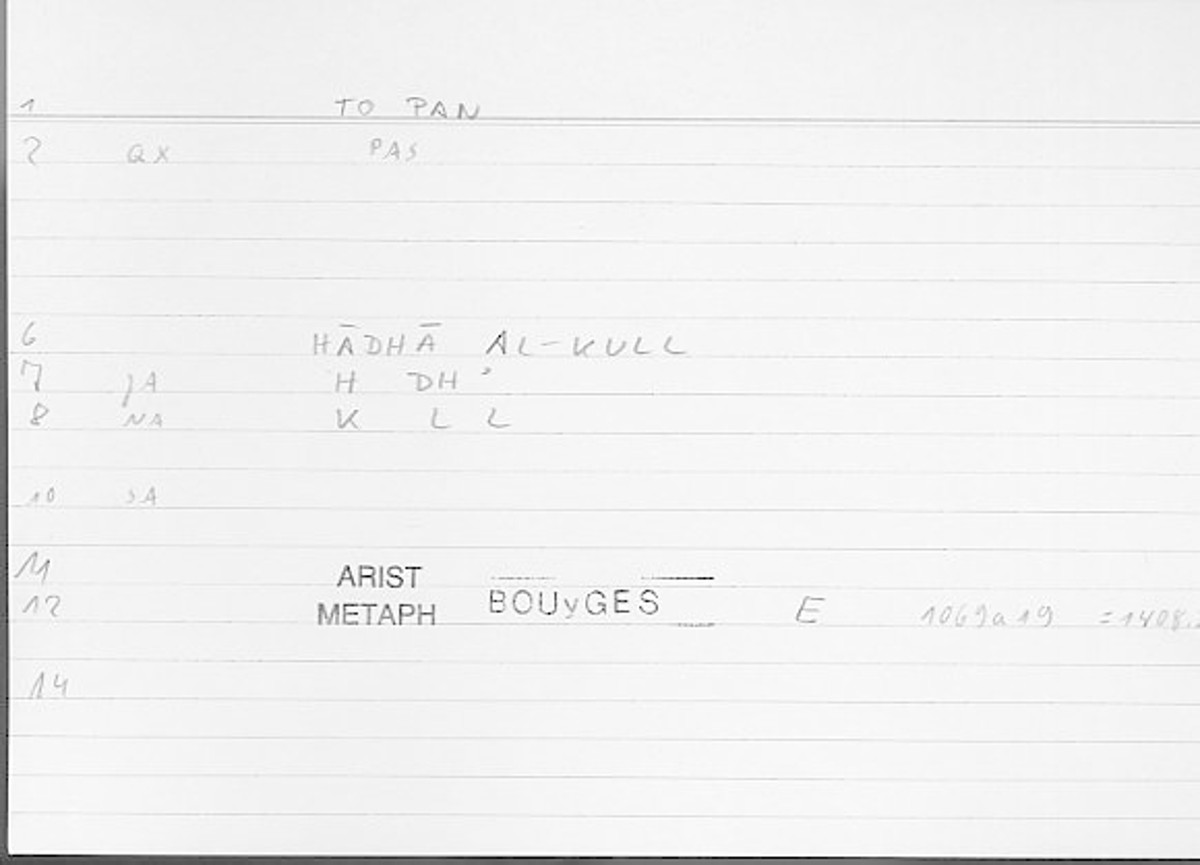 1 TO PAN
2 QX PAS
6 HĀDHĀ AL-KULL
7 JA H DH ʾ
8 NA K L L
10 SA
11 ARIST
12 METAPH BOUyGES E 1069a19 =1408.
14